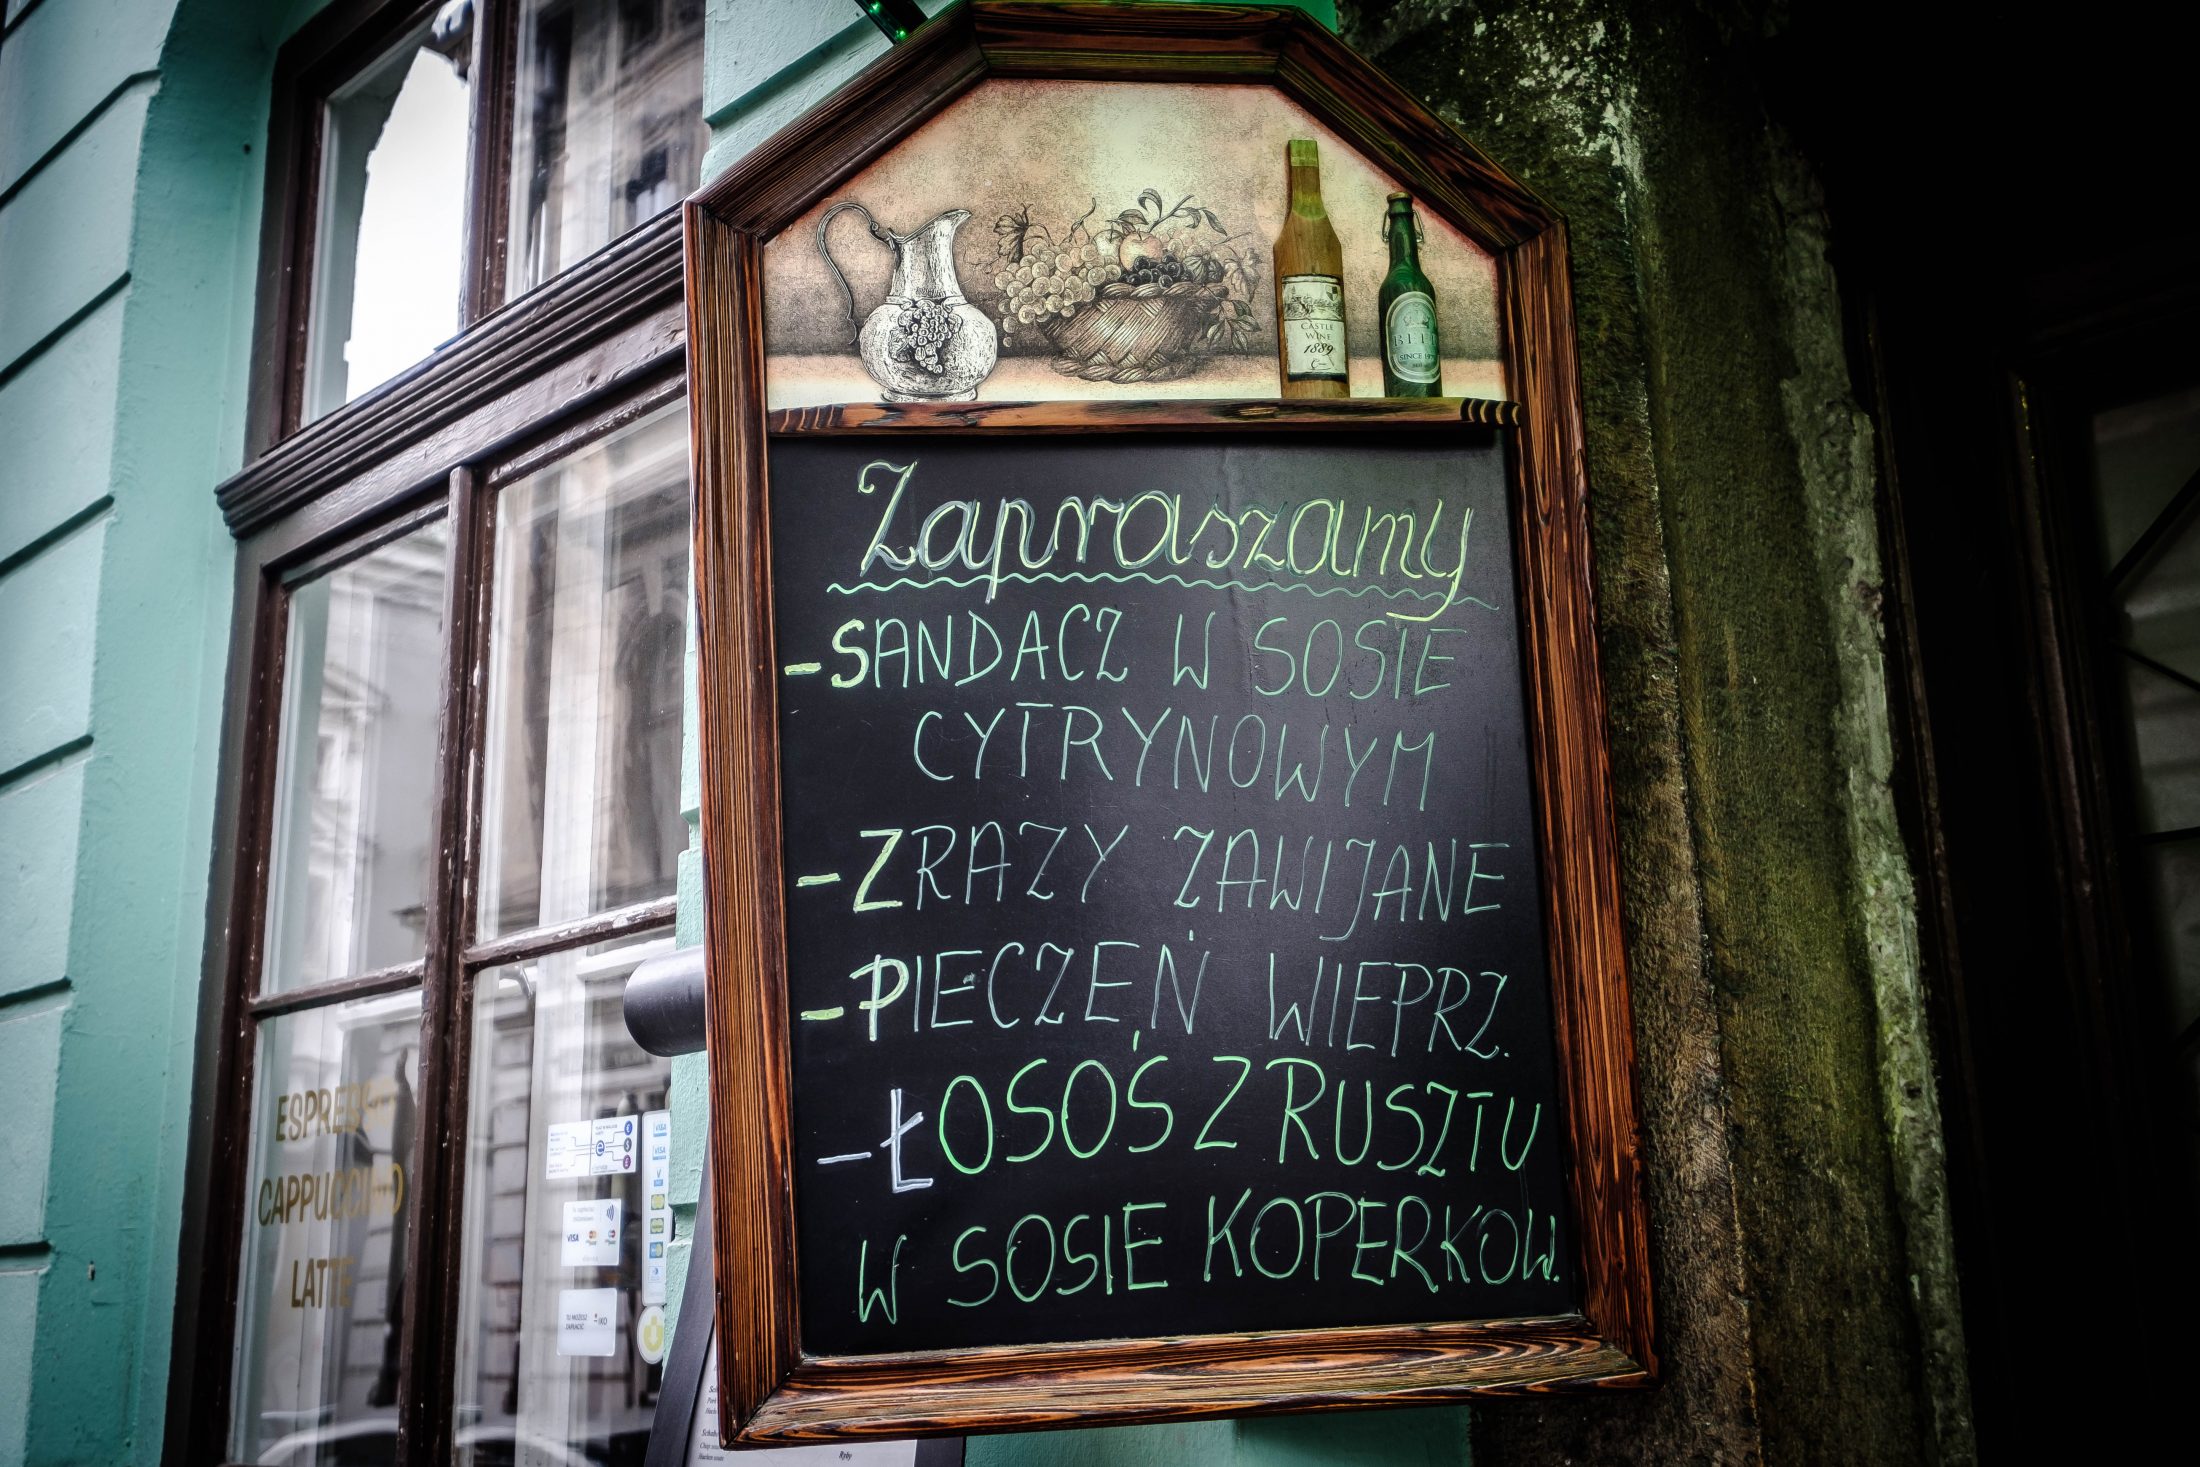 CASTLE
WINE
1889
SINCE
Zapraszamy
- SANDACZ W SOSIE
CYTRYNOWYM
- ZRAZY ZAWIJANE
- PIECZEŃ WIEPRZ.
- ŁOSOŚ Z RUSZTU
W SOSIE KOPERKOW.
ESPRESSO
CAPPUCCINO
LATTE
VISA
VISA
TU MOŻESZ
ZAPŁACIĆ
Ryby